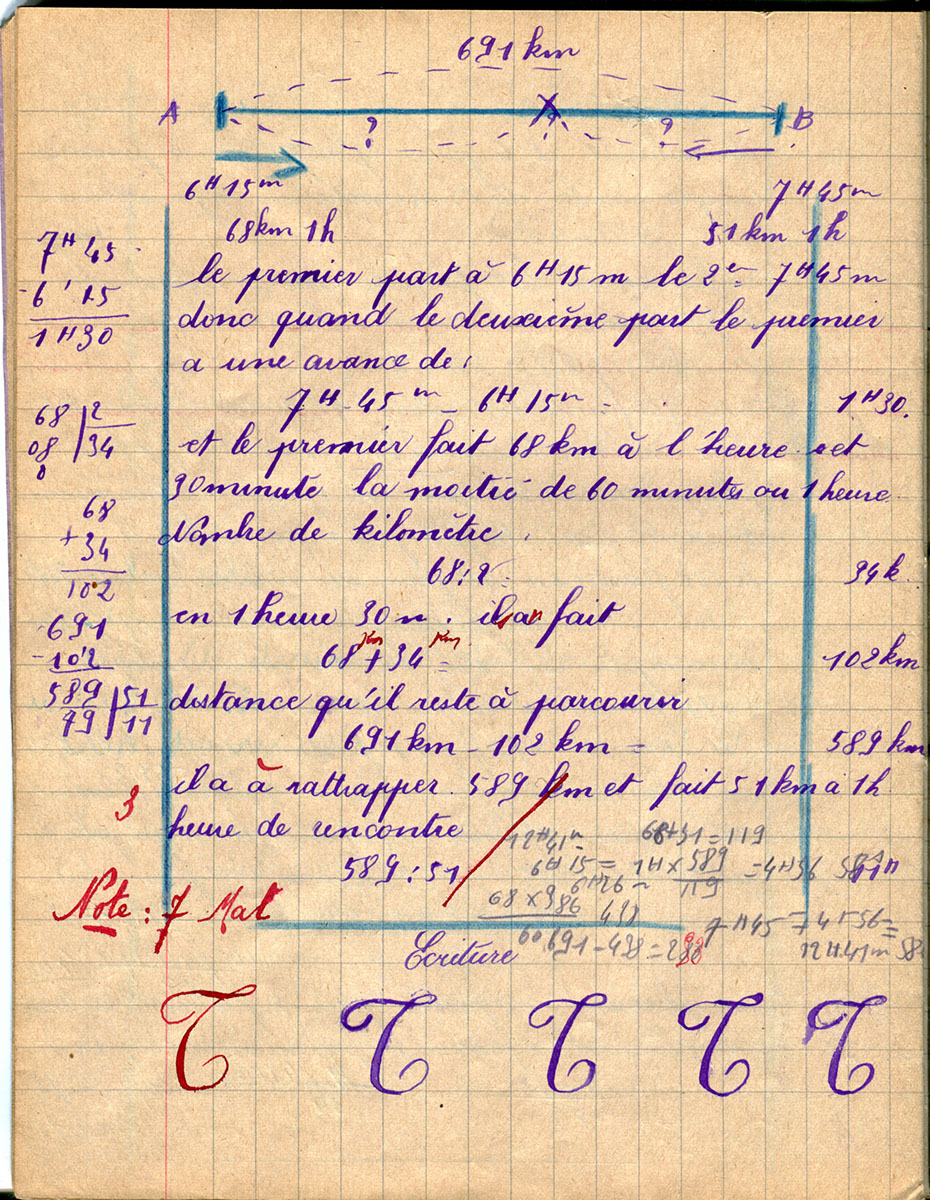 691 km
A ? X ? B
6H15m 7H45m
68km 1h 51km 1h
7H 45
- 6 ' 15
1H30
le premier part à 6H15m le 2e 7H45m
donc quand le deuxième part le premier
a une avance de :
7H 45m - 6H15m = 1H30.
68 | 2
08 | 34
0
et le premier fait 68km à l'heure et
30 minute la moitié de 60 minutes ou 1 heure
68
+ 34
102
Nombre de kilomètre
68 : 2 = 34k
en 1 heure 30 m. il a fait
68 km + 34 km = 102km
691
- 102
589 | 51
79 | 11
distance qu'il reste à parcourir
691km - 102 km = 589 km
il a à rattrapper 589 km et fait 51km à 1h
3
heure de rencontre
589 : 51 11H
12H41m 68+51=119
6H15 = 1H×589 = 4H56
6H26m 119
68×386 438
60 691-438=253
7H45 + 4H56 =
12H41m
Note : 7 Mal
Ecriture
T T T T T